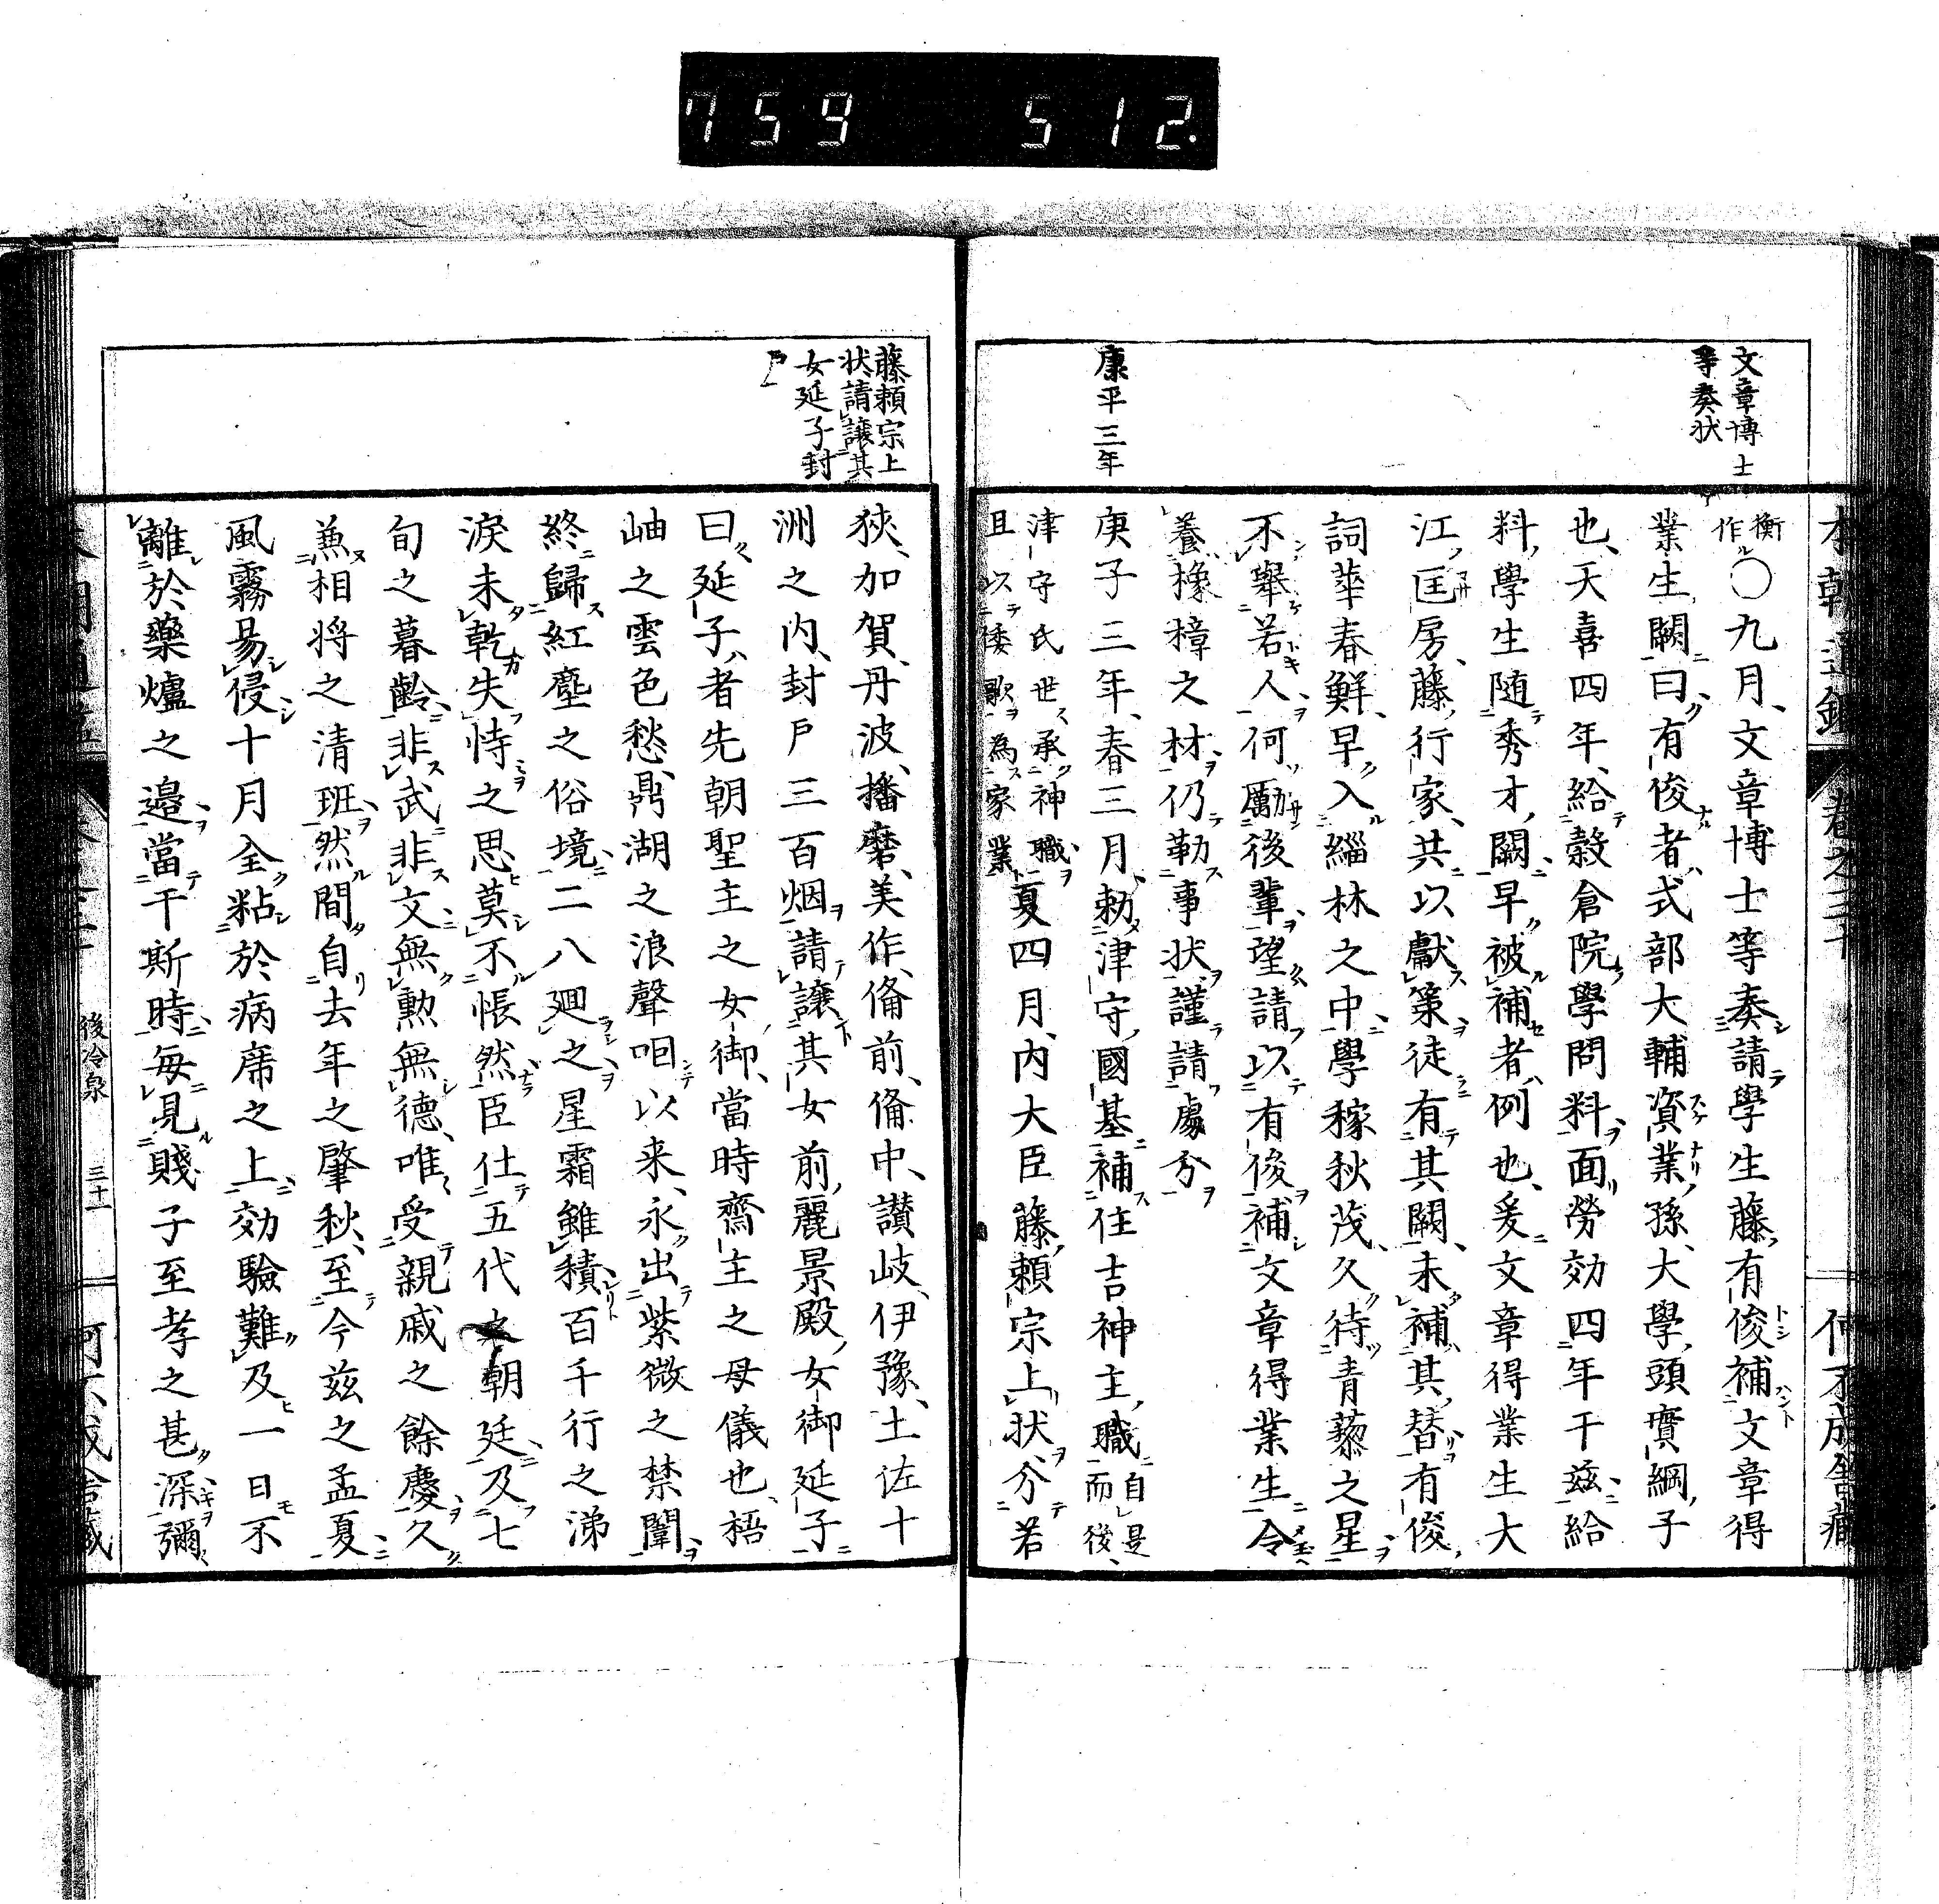 759 512.
文章博士
等奏状
康平三年
衡
作〇九月、文章博士等奏請學生藤有俊補文章得
業生闕曰、有俊者、式部大輔資業孫、大學頭實綱子
也、天喜四年、給穀倉院學問料、面勞効四年于茲、給
料學生随秀才闕、早被補者、例也、爰文章得業生大
江匡房、藤行家、共以獻策、徒有其闕、未補其替、有俊
詞華春鮮、早入緇林之中、學稼秋茂、久待青藜之星、
不舉若人、何厲後輩、望請以有俊補文章得業生、令
養櫲樟之材、仍勒事状、謹請處分
庚子三年、春三月、勅津守國基補住吉神主職自是
而後、
津守氏世承神職
且以倭歌為家業夏四月、内大臣藤頼宗上状、分若
藤頼宗上
状請讓其
女延子封
戸
狹、加賀、丹波、播磨、美作、備前、備中、讃岐、伊豫、土佐十
洲之内、封戸三百烟、請讓其女前麗景殿女御延子
曰、延子者先朝聖主之女御、當時齋主之母儀也、梧
岫之雲色愁、鼎湖之浪聲咽以来、永出紫微之禁闈、
終歸紅塵之俗境、二八廻之星霜雖積、百千行之涕
淚未乾、失恃之思、莫不悵然、臣仕五代之朝廷、及七
旬之暮齡、非武非文、無勲無德、唯受親戚之餘慶、久
兼相将之清班、然間自去年之肇秋、至今茲之孟夏、
風霧易侵、十月全粘於病席之上、効驗難及、一日不
離於藥爐之邊、當于斯時、每見賤子至孝之甚深、彌
本朝通鑑 卷之二十
後冷泉 三十一